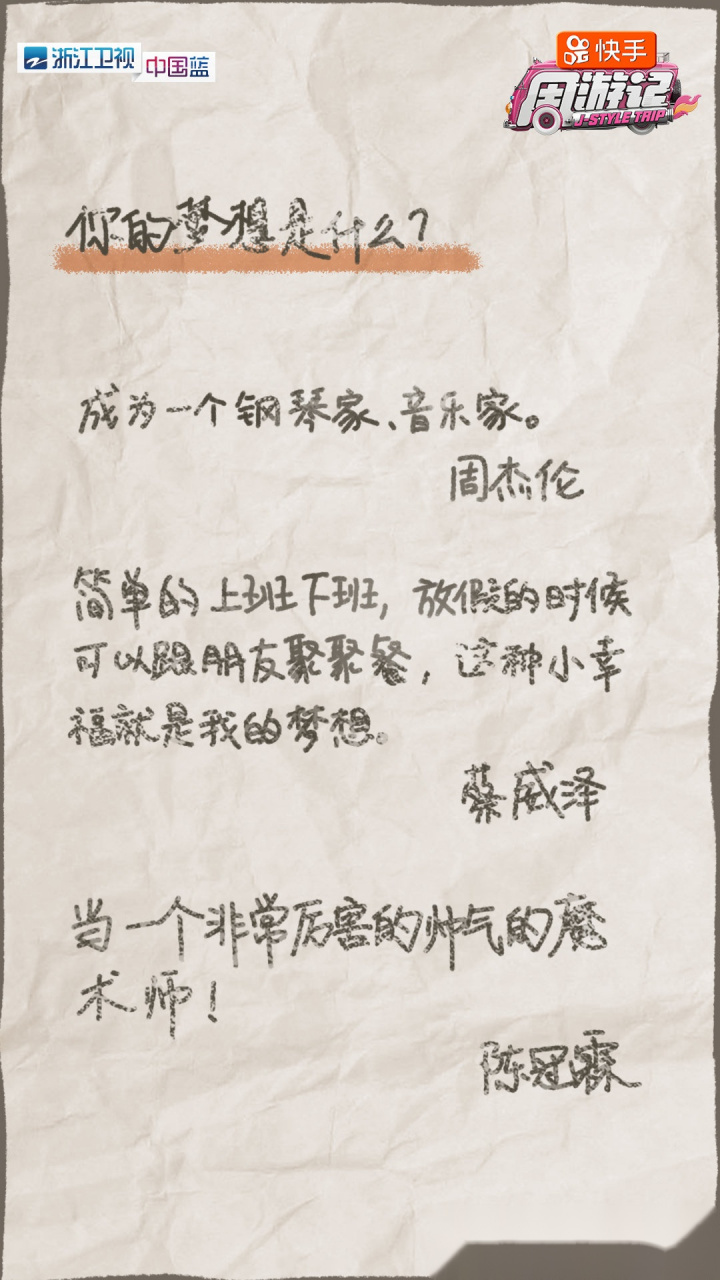 浙江卫视
中国蓝
快手
周游记
J-STYLE TRIP
你的梦想是什么？
成为一个钢琴家、音乐家。
周杰伦
简单的上班下班，放假的时候
可以跟朋友聚聚餐，这种小幸
福就是我的梦想。
蔡威泽
当一个非常厉害的帅气的魔
术师！
陈冠霖